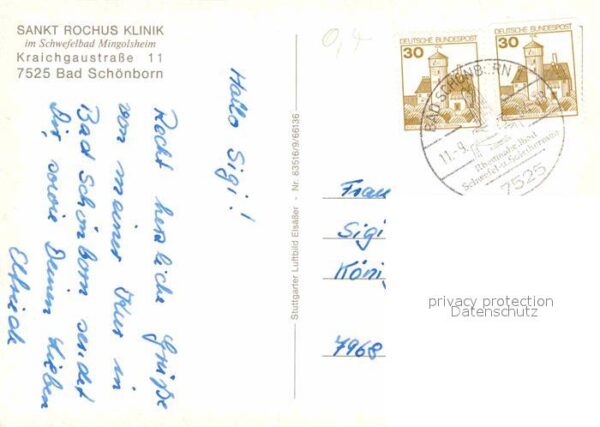 SANKT ROCHUS KLINIK
im Schwefelbad Mingolsheim
Kraichgaustraße 11
7525 Bad Schönborn
Hallo Sigi!
Recht herzliche Grüße
von meiner Kur in
Bad Schönborn sendet
Dir, sowie Deinen Lieben
Elfriede
Stuttgarter Luftbild Elsäßer - Nr. 83516/9/66136
0,4
DEUTSCHE BUNDESPOST
30
DEUTSCHE BUNDESPOST
30
BAD SCHÖNBORN
11.-9.
7525
Frau
Sigi
Köni
7968
privacy protection
Datenschutz